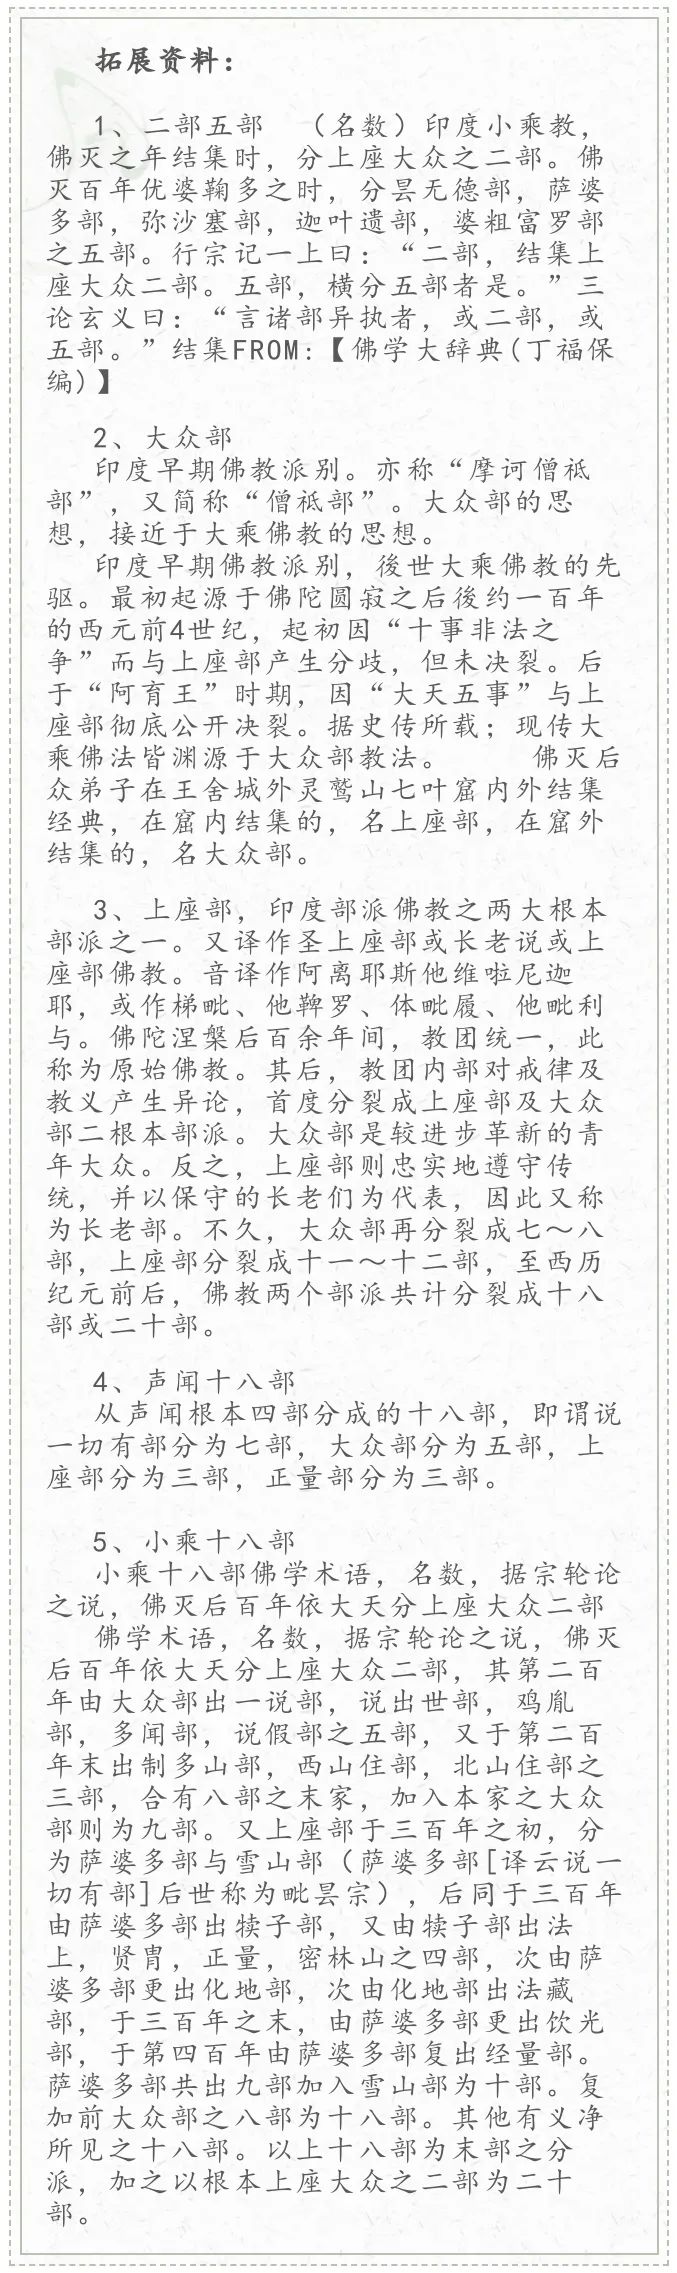 拓展资料：
1、二部五部　（名数）印度小乘教，
佛灭之年结集时，分上座大众之二部。佛
灭百年优婆鞠多之时，分昙无德部，萨婆
多部，弥沙塞部，迦叶遗部，婆粗富罗部
之五部。行宗记一上曰：“二部，结集上
座大众二部。五部，横分五部者是。”三
论玄义曰：“言诸部异执者，或二部，或
五部。”结集FROM:【佛学大辞典(丁福保
编)】
2、大众部
印度早期佛教派别。亦称“摩诃僧祇
部”，又简称“僧祇部”。大众部的思
想，接近于大乘佛教的思想。
印度早期佛教派别，後世大乘佛教的先
驱。最初起源于佛陀圆寂之后後约一百年
的西元前4世纪，起初因“十事非法之
争”而与上座部产生分歧，但未决裂。后
于“阿育王”时期，因“大天五事”与上
座部彻底公开决裂。据史传所载；现传大
乘佛法皆渊源于大众部教法。　　　佛灭后
众弟子在王舍城外灵鹫山七叶窟内外结集
经典，在窟内结集的，名上座部，在窟外
结集的，名大众部。
3、上座部，印度部派佛教之两大根本
部派之一。又译作圣上座部或长老说或上
座部佛教。音译作阿离耶斯他维啦尼迦
耶，或作梯毗、他鞞罗、体毗履、他毗利
与。佛陀涅槃后百余年间，教团统一，此
称为原始佛教。其后，教团内部对戒律及
教义产生异论，首度分裂成上座部及大众
部二根本部派。大众部是较进步革新的青
年大众。反之，上座部则忠实地遵守传
统，并以保守的长老们为代表，因此又称
为长老部。不久，大众部再分裂成七～八
部，上座部分裂成十一～十二部，至西历
纪元前后，佛教两个部派共计分裂成十八
部或二十部。
4、声闻十八部
从声闻根本四部分成的十八部，即谓说
一切有部分为七部，大众部分为五部，上
座部分为三部，正量部分为三部。
5、小乘十八部
小乘十八部佛学术语，名数，据宗轮论
之说，佛灭后百年依大天分上座大众二部
佛学术语，名数，据宗轮论之说，佛灭
后百年依大天分上座大众二部，其第二百
年由大众部出一说部，说出世部，鸡胤
部，多闻部，说假部之五部，又于第二百
年末出制多山部，西山住部，北山住部之
三部，合有八部之末家，加入本家之大众
部则为九部。又上座部于三百年之初，分
为萨婆多部与雪山部（萨婆多部[译云说一
切有部]后世称为毗昙宗），后同于三百年
由萨婆多部出犊子部，又由犊子部出法
上，贤胄，正量，密林山之四部，次由萨
婆多部更出化地部，次由化地部出法藏
部，于三百年之末，由萨婆多部更出饮光
部，于第四百年由萨婆多部复出经量部。
萨婆多部共出九部加入雪山部为十部。复
加前大众部之八部为十八部。其他有义净
所见之十八部。以上十八部为末部之分
派，加之以根本上座大众之二部为二十
部。